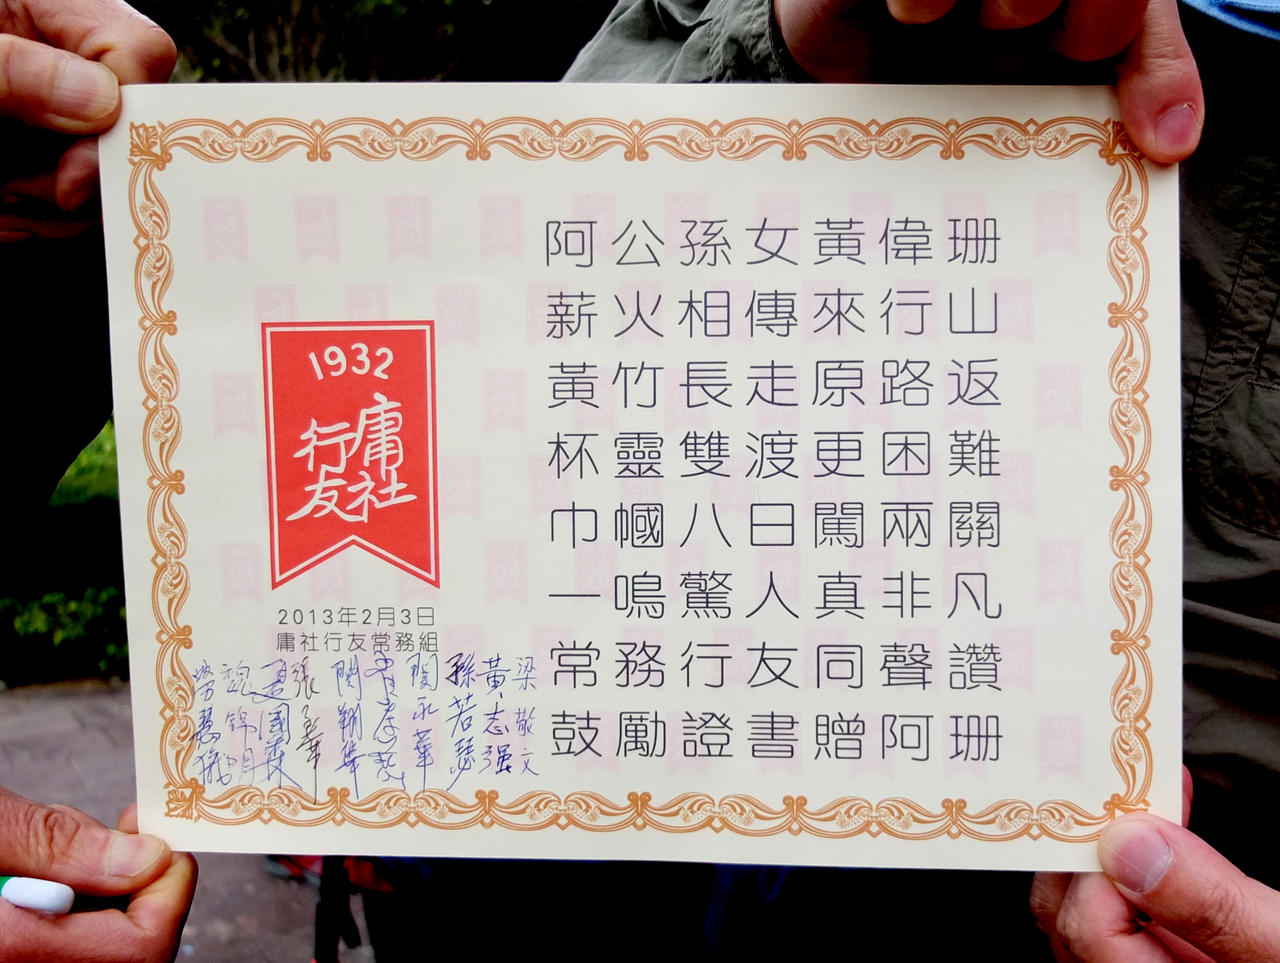 阿公孫女黃偉珊
薪火相傳來行山
黃竹長走原路返
杯靈雙渡更困難
巾幗八日闖兩關
一鳴驚人真非凡
常務行友同聲讚
鼓勵證書贈阿珊
1932
庸社
行友
2013年2月3日
庸社行友常務組
梁敬文
黃志強
孫若瑟